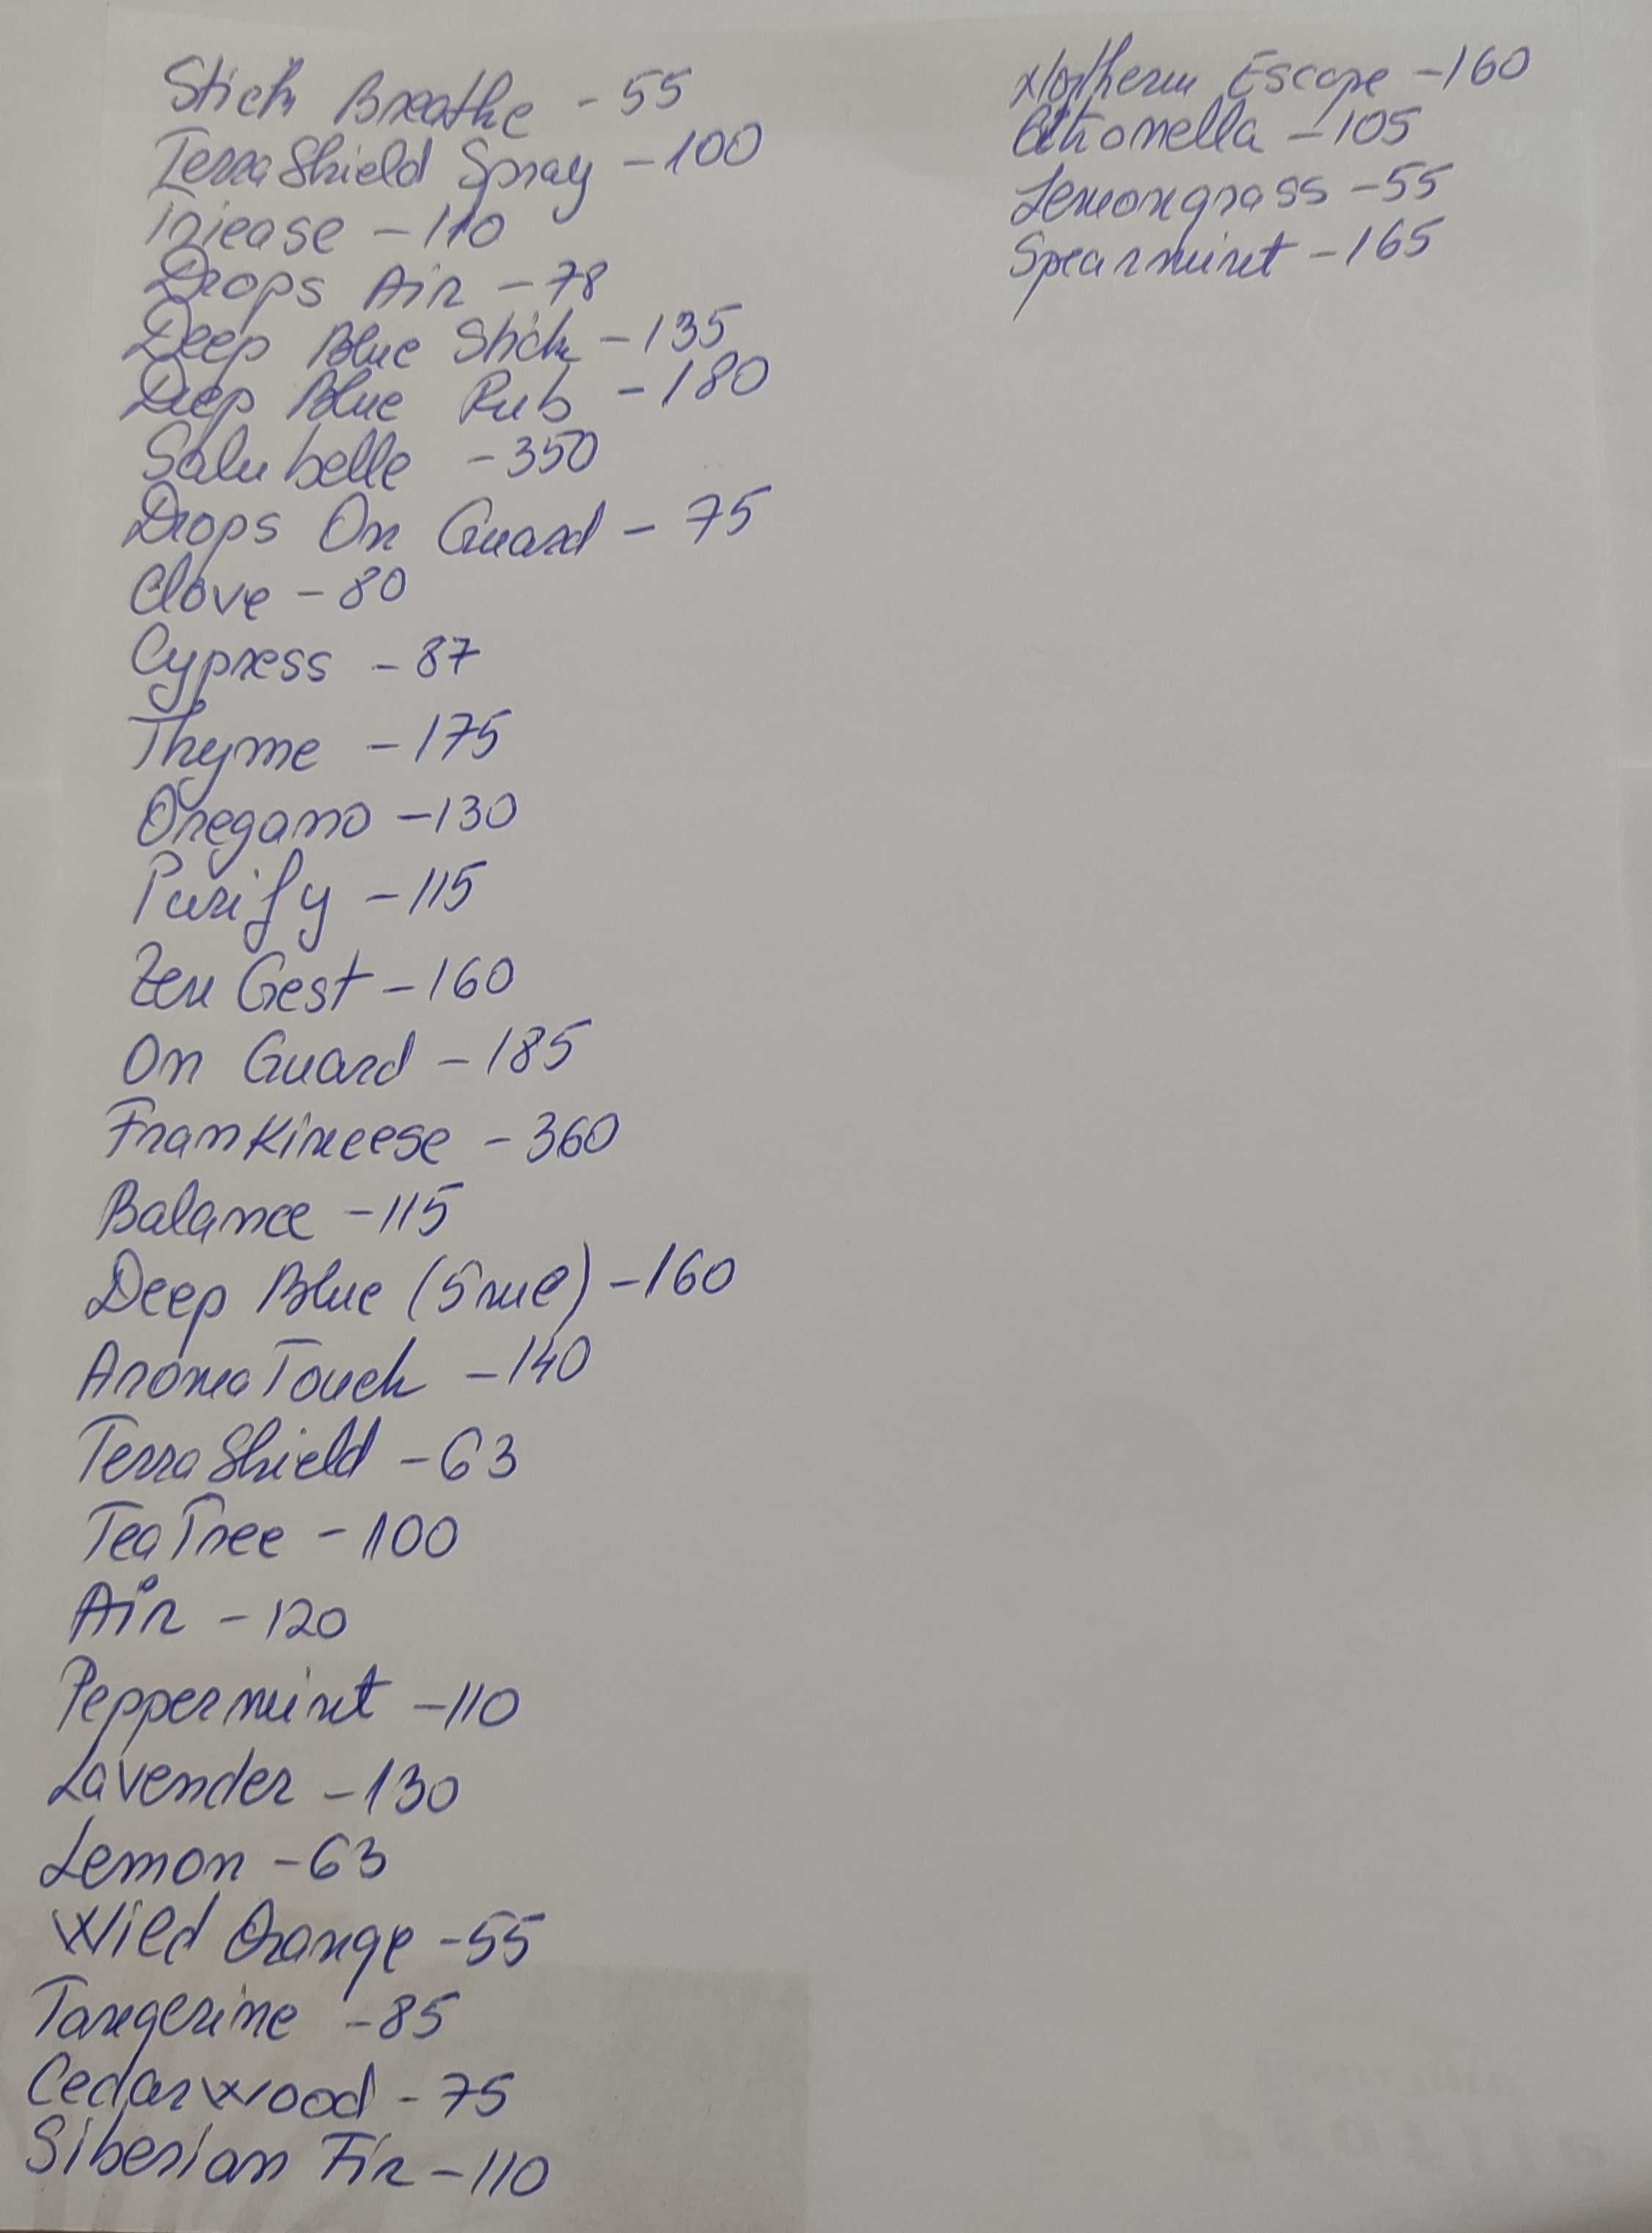 Stick Breathe - 55
TerraShield Spray - 100
Triease - 110
Drops Air - 78
Deep Blue Stick - 135
Deep Blue Rub - 180
Salubelle - 350
Drops On Guard - 75
Clove - 80
Cypress - 87
Thyme - 175
Oregano - 130
Purify - 115
Zen Gest - 160
On Guard - 185
Frankineese - 360
Balance - 115
Deep Blue (5 ml) - 160
AromaTouch - 140
TerraShield - 63
TeaTree - 100
Air - 120
Peppermint - 110
Lavender - 130
Lemon - 63
Wild Orange - 55
Tangerine - 85
Cedarwood - 75
Siberian Fir - 110
Northern Escape - 160
Citronella - 105
Lemongrass - 55
Spearmint - 165